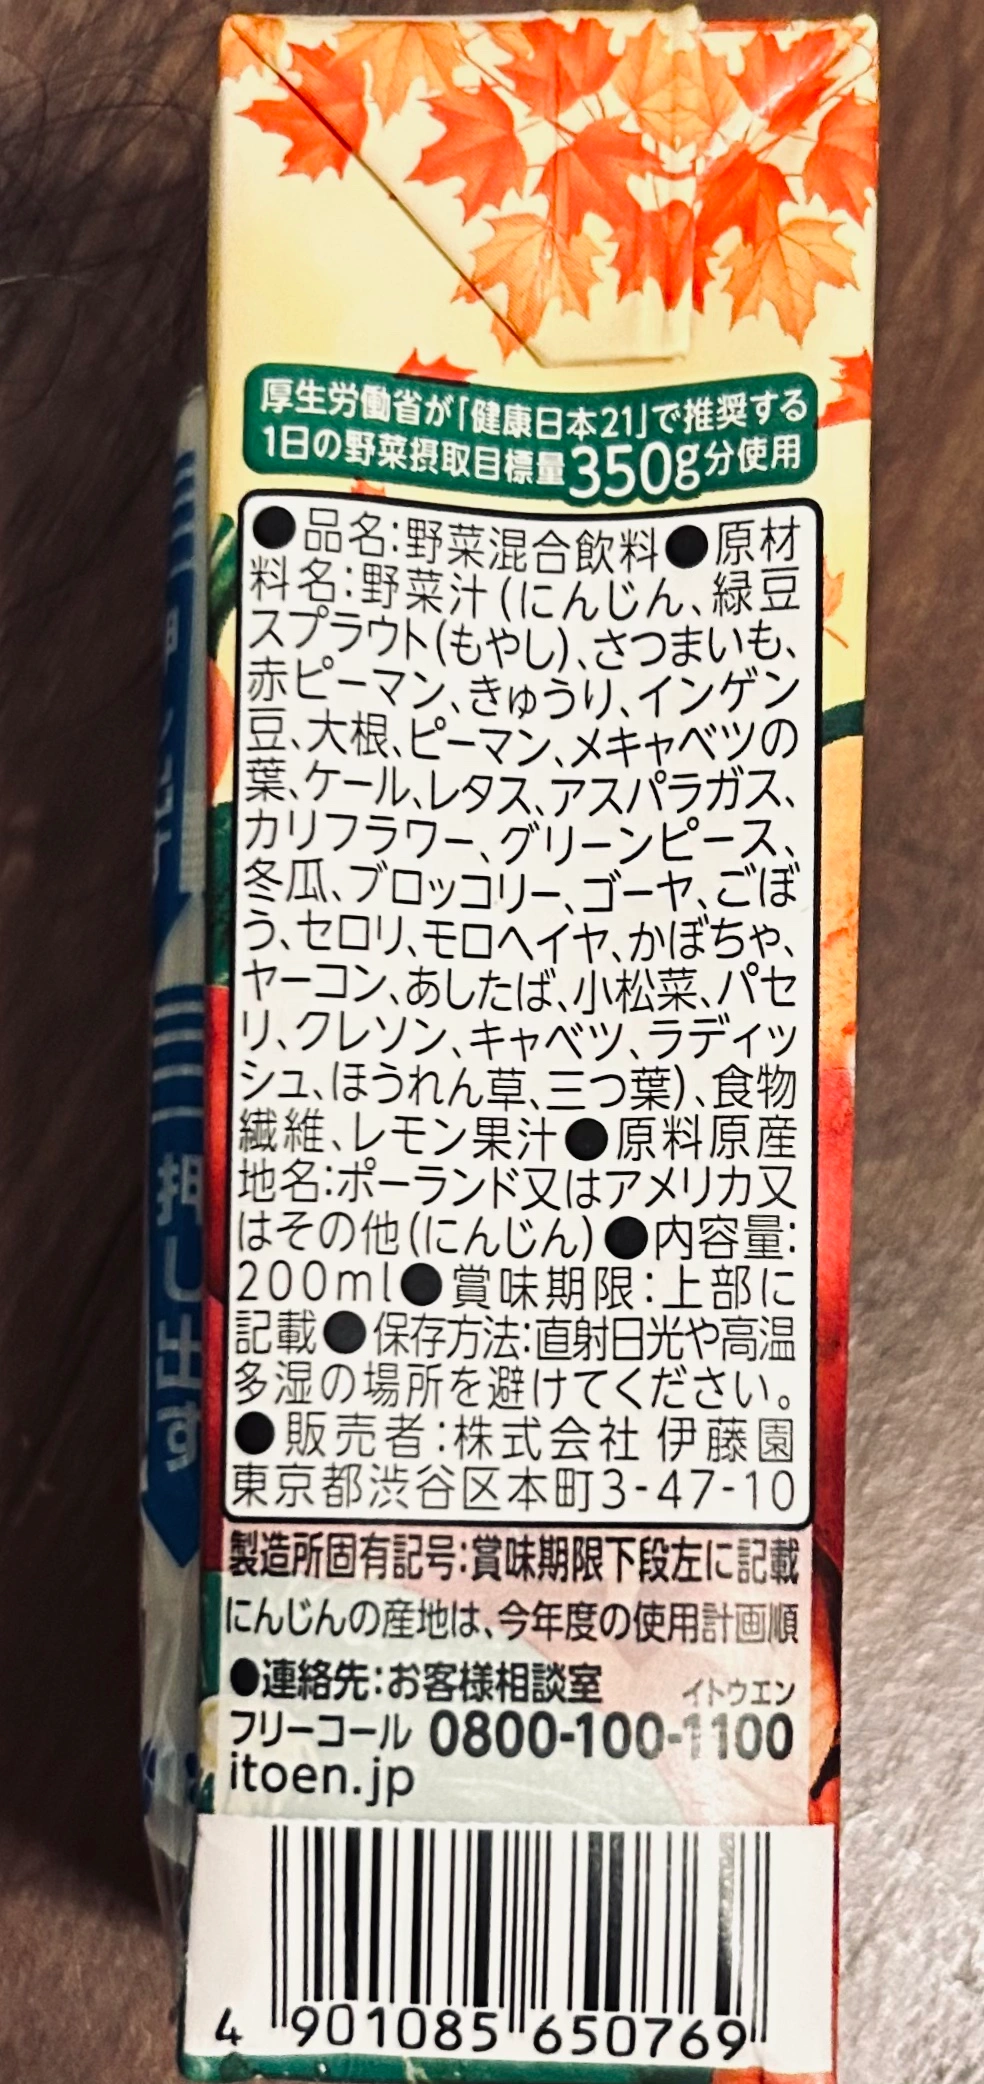 厚生労働省が「健康日本21」で推奨する
1日の野菜摂取目標量350g分使用
●品名:野菜混合飲料●原材
料名:野菜汁(にんじん、緑豆
スプラウト(もやし)、さつまいも、
赤ピーマン、きゅうり、インゲン
豆、大根、ピーマン、メキャベツの
葉、ケール、レタス、アスパラガス、
カリフラワー、グリーンピース、
冬瓜、ブロッコリー、ゴーヤ、ごぼ
う、セロリ、モロヘイヤ、かぼちゃ、
ヤーコン、あしたば、小松菜、パセ
リ、クレソン、キャベツ、ラディッ
シュ、ほうれん草、三つ葉)、食物
繊維、レモン果汁●原料原産
地名:ポーランド又はアメリカ又
はその他(にんじん)●内容量:
200ml●賞味期限:上部に
記載●保存方法:直射日光や高温
多湿の場所を避けてください。
●販売者:株式会社 伊藤園
東京都渋谷区本町3-47-10
製造所固有記号:賞味期限下段左に記載
にんじんの産地は、今年度の使用計画順
●連絡先:お客様相談室
イトウエン
フリーコール 0800-100-1100
itoen.jp
4 901085 650769
押し出す